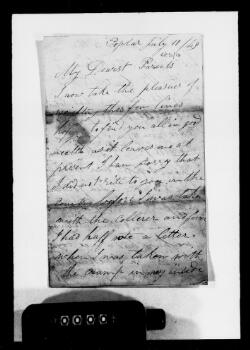 Poplar July 10/49
My Dearest Parents
I now take the pleasure of
writing this few lines
hoping to find you all in good
health as it leaves me at
present I ham sorry that
I did not rite to you in the
with the Collerer and from
this half rote a letter
when I was taken with
the cramp in my inside
0000